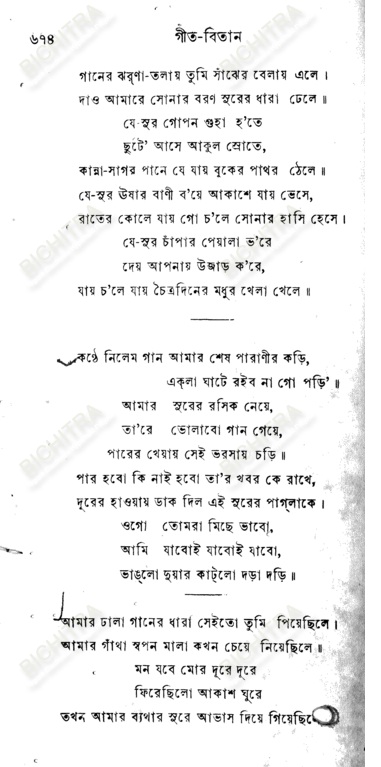 ৬৭৪ গীত-বিতান
গানের ঝর্‌ণা-তলায় তুমি সাঁঝের বেলায় এলে।
দাও আমারে সোনার বরণ সুরের ধারা ঢেলে॥
যে-সুর গোপন গুহা হ'তে
ছুটে' আসে আকুল স্রোতে,
কান্না-সাগর পানে যে যায় বুকের পাথর ঠেলে॥
যে-সুর ঊষার বাণী ব'য়ে আকাশে যায় ভেসে,
রাতের কোলে যায় গো চ'লে সোনার হাসি হেসে।
যে-সুর চাঁপার পেয়ালা ভ'রে
দেয় আপনায় উজাড় ক'রে,
যায় চ'লে যায় চৈত্রদিনের মধুর খেলা খেলে॥
কণ্ঠে নিলেম গান আমার শেষ পারাণীর কড়ি,
এক্‌লা ঘাটে রইব না গো পড়ি'॥
আমার সুরের রসিক নেয়ে,
তা'রে ভোলাবো গান গেয়ে,
পারের খেয়ায় সেই ভরসায় চড়ি॥
পার হবো কি নাই হবো তা'র খবর কে রাখে,
দূরের হাওয়ায় ডাক দিল এই সুরের পাগ্‌লাকে।
ওগো তোমরা মিছে ভাবো,
আমি যাবোই যাবোই যাবো,
ভাঙ্‌লো দুয়ার কাট্‌লো দড়া দড়ি॥
আমার ঢালা গানের ধারা সেইতো তুমি পিয়েছিলে।
আমার গাঁথা স্বপন মালা কখন চেয়ে নিয়েছিলে॥
মন যবে মোর দূরে দূরে
ফিরেছিলো আকাশ ঘুরে
তখন আমার ব্যথার সুরে আভাস দিয়ে গিয়েছিলে
BICHITRA
BICHITRA
BICHITRA
BICHITRA
BICHITRA
BICHITRA